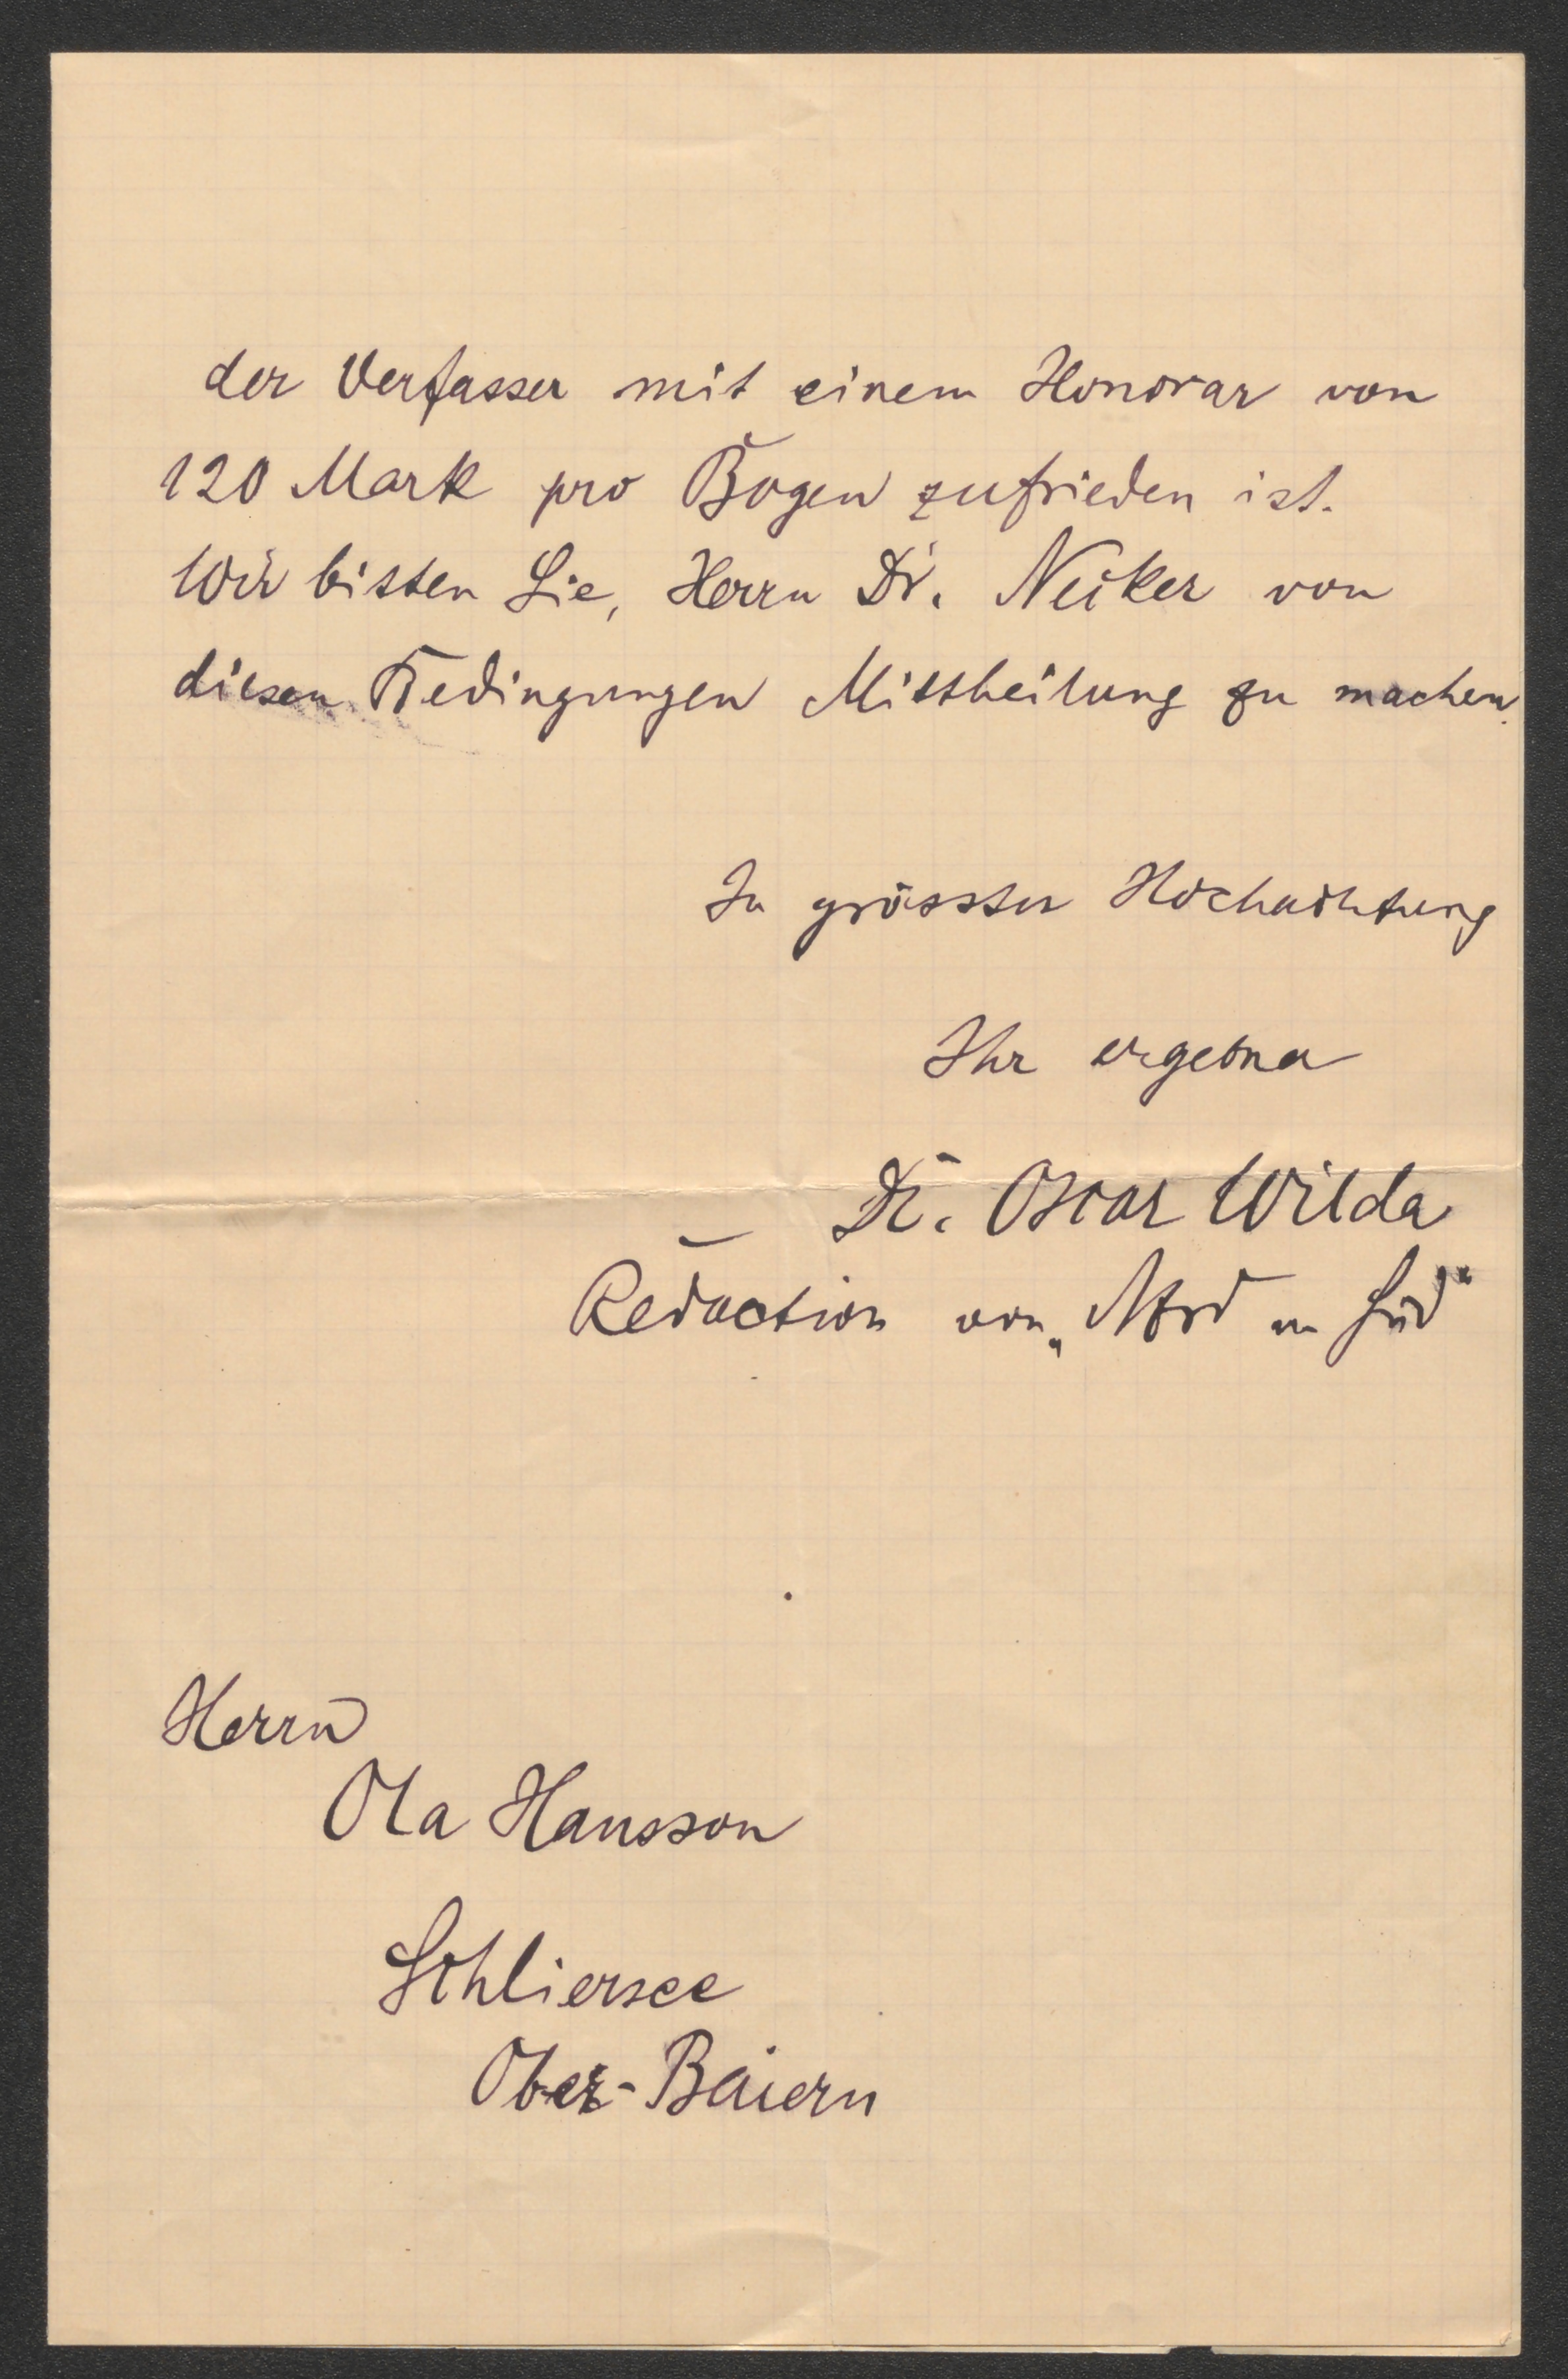 der Verfasser mit einem Honorar von
120 Mark pro Bogen zufrieden ist.
Wir bitten Sie, Herrn Dr. Necker von
diesen Bedingungen Mittheilung zu machen.
In grösster Hochachtung
Ihr ergebner
Dr. Oscar Wilda
Redaction von „Nord u Süd"
Herrn
Ola Hansson
Schliersee
Ober-Baiern